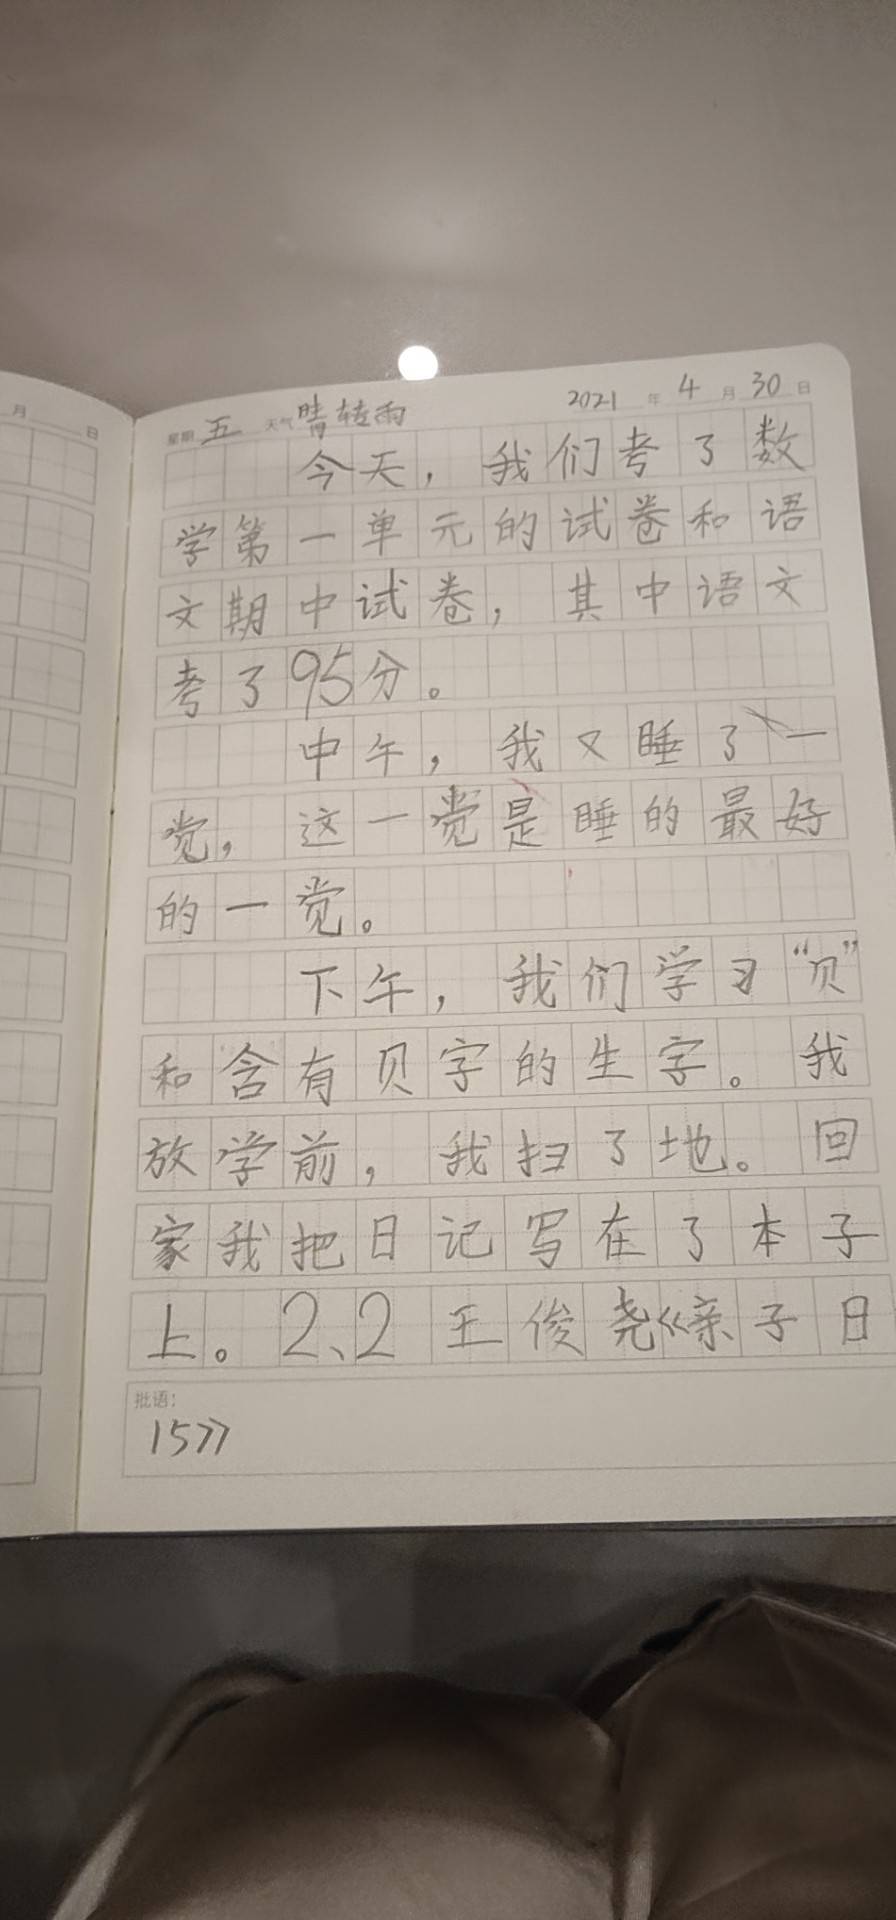 月 日
星期 五 天气 晴转雨 2021 年 4 月 30 日
今天，我们考了数
学第一单元的试卷和语
文期中试卷，其中语文
考了95分。
中午，我又睡了一
觉，这一觉是睡的最好
的一觉。
下午，我们学习“贝”
和含有贝字的生字。我
放学前，我扫了地。回
家我把日记写在了本子
上。2、2王俊尧《亲子日
批语：
15》